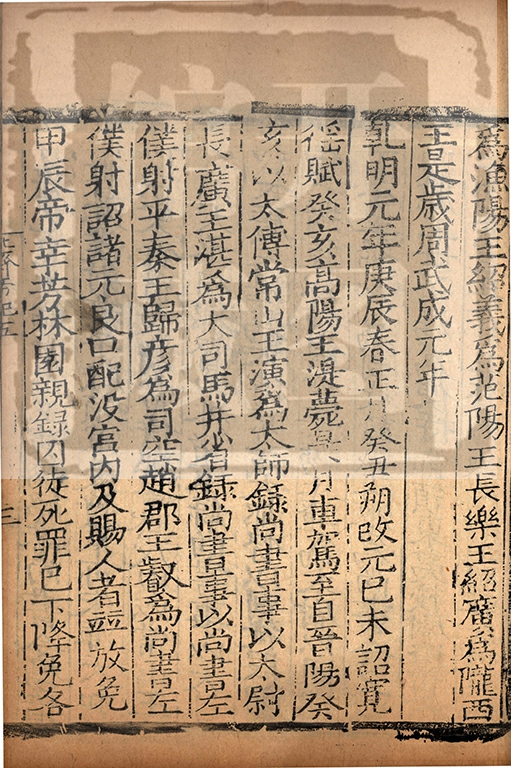 為漁陽王紹義為范陽王長樂王紹廣為隴西
王是歲周武成元年
乾明元年庚辰春正月癸丑朔改元己未詔寬
徭賦癸亥高陽王湜薨是月車駕至自晉陽癸
亥以太傅常山王演為太師錄尚書事以太尉
長廣王湛為大司馬并省錄尚書事以尚書左
僕射平秦王歸彥為司空趙郡王叡為尚書左
僕射詔諸元良口配没官內及賜人者並放免
甲辰帝幸芳林園親錄囚徒死罪已下降免各